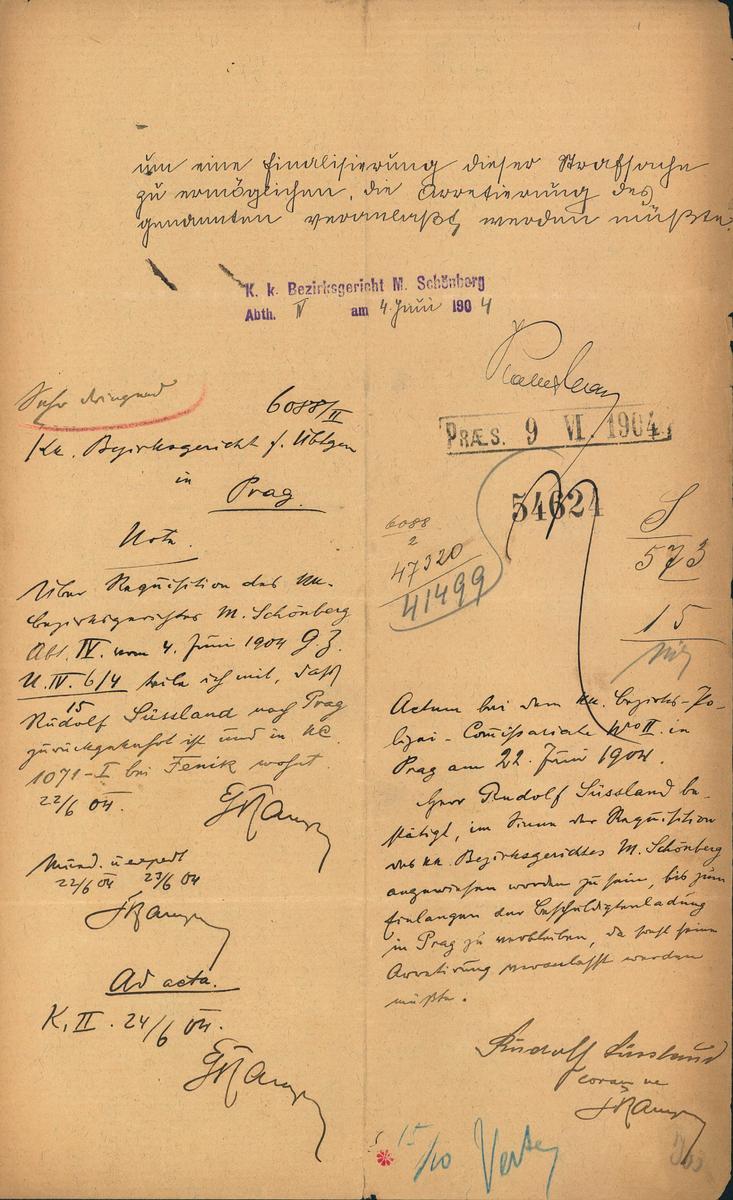 um eine Finalisierung dieser Strafsache
zu ermöglichen, die Arretierung des
genannten veranlaßt werden müßte.
K. k. Bezirksgericht M. Schönberg
Abth. IV am 4. Juni 1904
Sehr dringend
6088/II
Kk. Bezirksgericht f. Übtgen
in
Prag.
Note.
Über Requisition des kk.
Bezirksgerichtes M. Schönberg
Abt. IV. vom 4. Juni 1904 G.Z.
U.IV. 6/4 teile ich mit, daß
15
Rudolf Süssland nach Prag
zurückgekehrt ist und in NC.
1071-I bei Fenik wohnt.
22/6 04.
Mund. u expedt
22/6 04 23/6 04
Ad acta.
K. II. 24/6 04.
PRÆS. 9 VI. 1904
54624
6088
2
47320
41499
S
573
15
Actum bei dem kk. Bezirks-Po-
lizei-Comissariate No II. in
Prag am 22. Juni 1904.
Herr Rudolf Süssland be-
stätigt, im Sinne der Requisition
des kk. Bezirksgerichtes M. Schönberg
angewiesen worden zu sein, bis zum
Einlangen der Beschuldigtenladung
in Prag zu verbleiben, da sonst seine
Arretirung veranlasst werden
müßte.
Rudolf Süssland
coram me
15/10